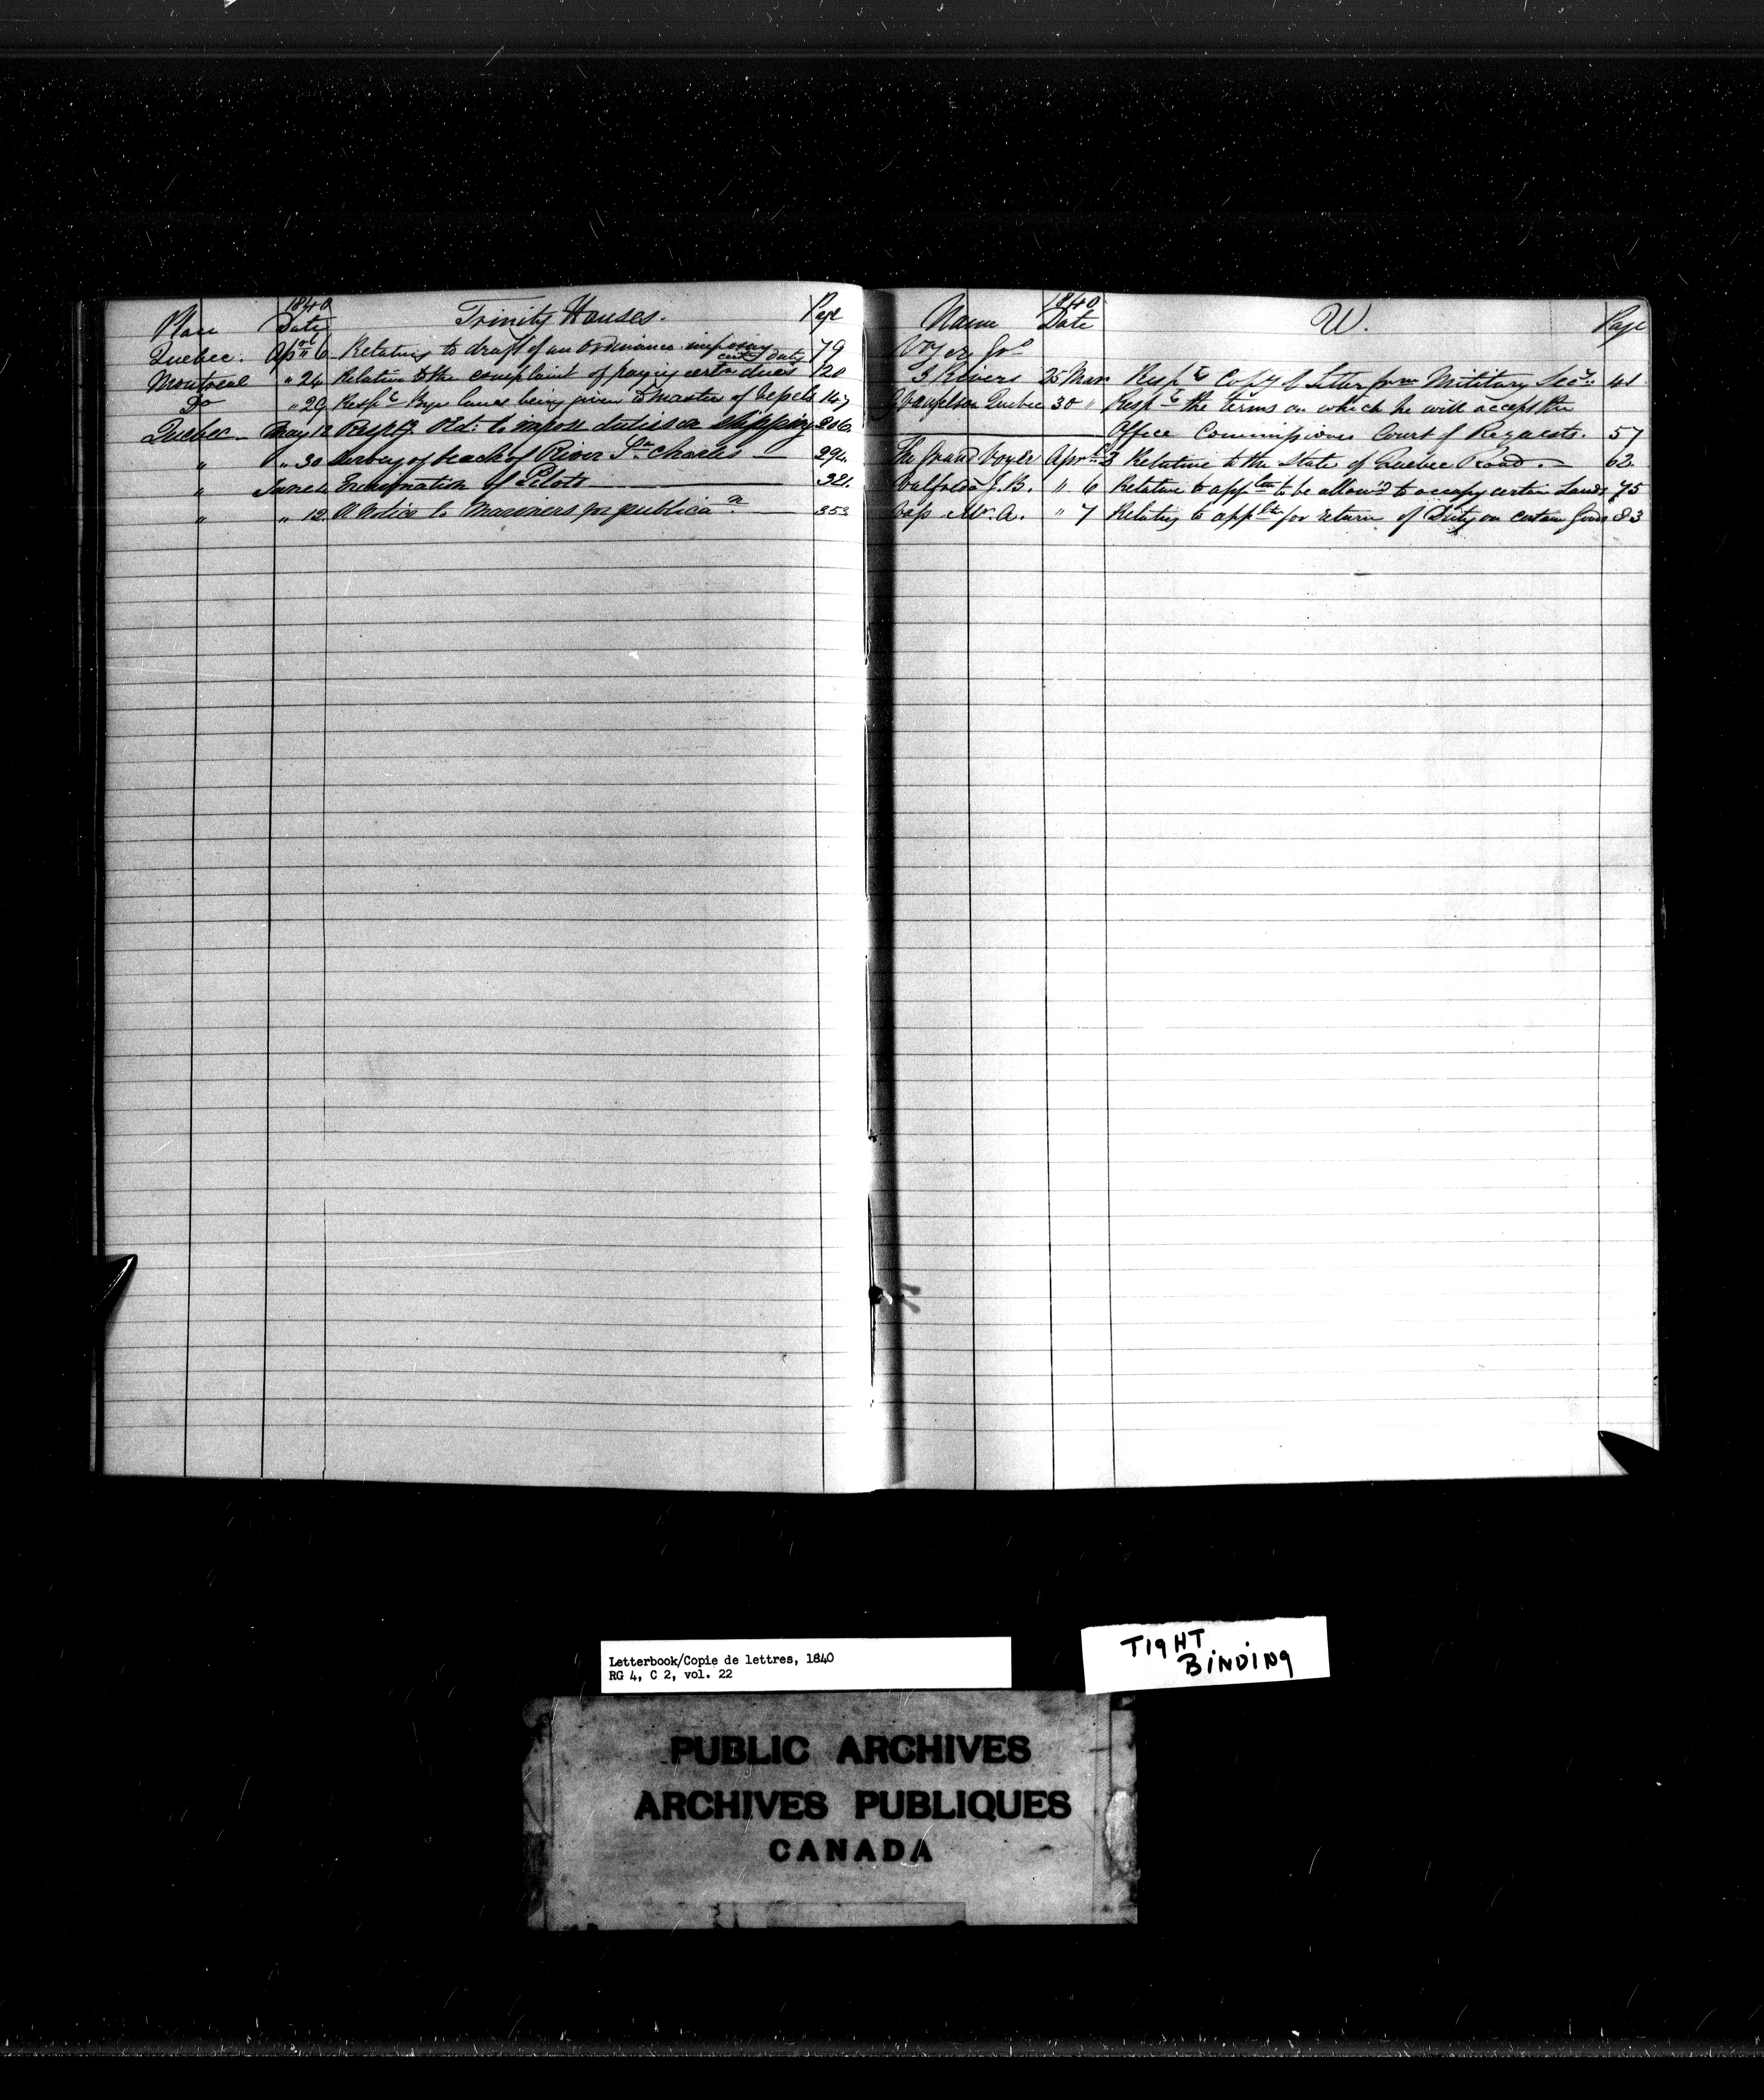 Place 1840 Date Trinity Houses. Page
Quebec. Apl 6 Relating to draft of an Ordinance imposing certn duty 79
Montreal " 24 Relative to the complaint of paying certn dues 120
Do " 29 Respg Bye laws being given to Master of Vessels 147
Quebec May 12 Respg Ord: to impose duties on Shipping 206
" " 30 Survey of beach of River St Charles 294
" June Examination of Pilots 321
" " 12 A Notice to Mariners for publican 353
Name 1840 Date W. Page
Voyer
3 Rivers 25 Mar Respg Copy of Letter from Military Secy 41
Vanfelson Quebec 30 " Respg the terms on which he will accept the
Office Commissioner Court of Requests. 57
The Grand Voyer April 3 Relative to the State of Quebec Road. 62
J. B. " 6 Relative to appln to be allow'd to occupy certain Lands 75
Mr. A. " 7 Relating to appln for return of Duty on certain goods 83
Letterbook/Copie de lettres, 1840
RG 4, C 2, vol. 22
TIGHT
BINDING
PUBLIC ARCHIVES
ARCHIVES PUBLIQUES
CANADA